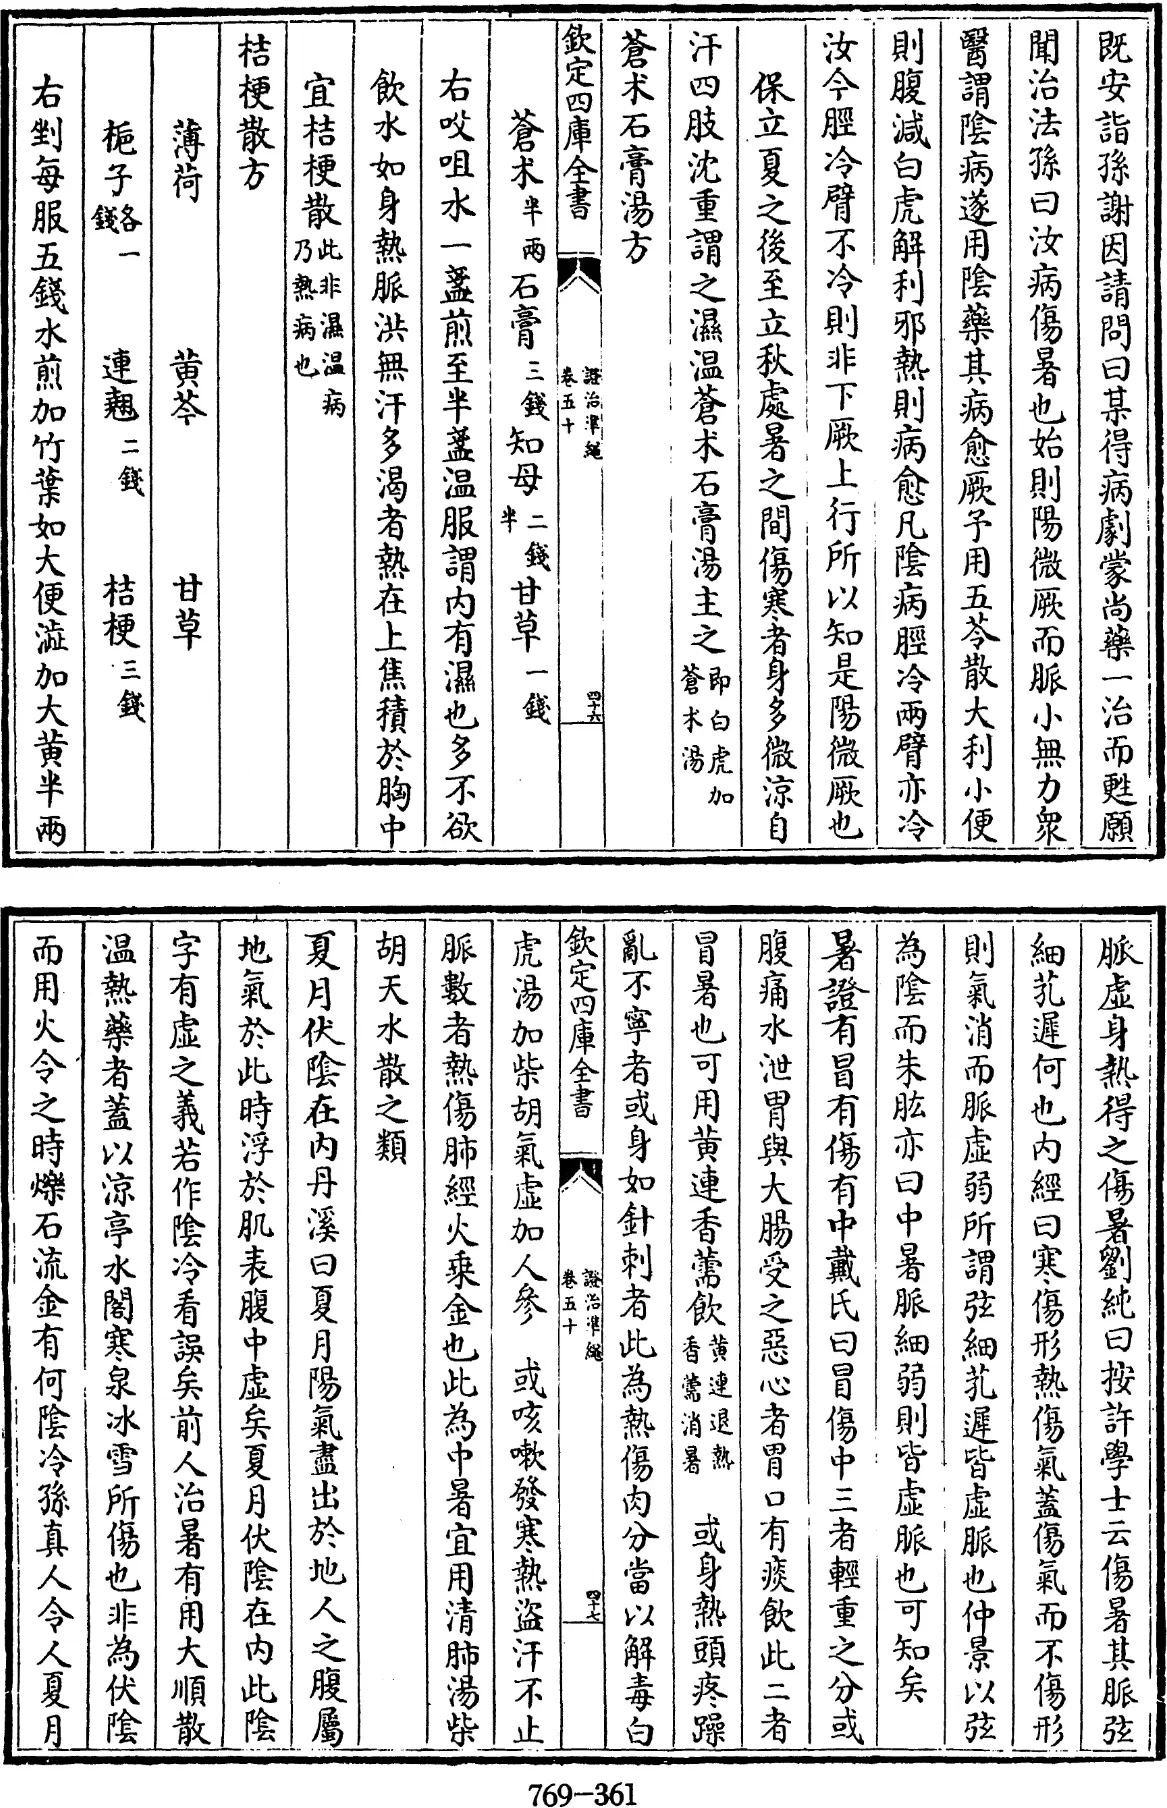 既安詣孫謝因請問曰某得病劇蒙尚藥一治而甦願
聞治法孫曰汝病傷暑也始則陽微厥而脈小無力衆
醫謂陰病遂用陰藥其病愈厥予用五苓散大利小便
則腹減白虎解利邪熱則病愈凡陰病脛冷兩臂亦冷
汝今脛冷臂不冷則非下厥上行所以知是陽微厥也
保立夏之後至立秋處暑之間傷寒者身多微涼自
汗四肢沈重謂之濕温蒼术石膏湯主之即白虎加蒼术湯
蒼术石膏湯方
欽定四庫全書 證治準繩 卷五十 四十六
蒼术半兩石膏三錢知母二錢半甘草一錢
右㕮咀水一盞煎至半盞温服謂内有濕也多不欲
飲水如身熱脈洪無汗多渴者熱在上焦積於胸中
宜桔梗散此非濕温病乃熱病也
桔梗散方
薄荷 黄芩 甘草
梔子各一錢 連翹二錢 桔梗三錢
右剉每服五錢水煎加竹葉如大便澁加大黄半兩
脈虚身熱得之傷暑劉純曰按許學士云傷暑其脈弦
細芤遲何也内經曰寒傷形熱傷氣蓋傷氣而不傷形
則氣消而脈虚弱所謂弦細芤遲皆虚脈也仲景以弦
為陰而朱肱亦曰中暑脈細弱則皆虚脈也可知矣
暑證有冒有傷有中戴氏曰冒傷中三者輕重之分或
腹痛水泄胃與大腸受之惡心者胃口有痰飲此二者
冒暑也可用黄連香薷飲黄連退熱香薷消暑 或身熱頭疼躁
亂不寧者或身如針刺者此為熱傷肉分當以解毒白
欽定四庫全書 證治準繩 卷五十 四十七
虎湯加柴胡氣虚加人參 或咳嗽發寒熱盜汗不止
脈數者熱傷肺經火乘金也此為中暑宜用清肺湯柴
胡天水散之類
夏月伏陰在内丹溪曰夏月陽氣盡出於地人之腹屬
地氣於此時浮於肌表腹中虚矣夏月伏陰在内此陰
字有虚之義若作陰冷看誤矣前人治暑有用大順散
温熱藥者蓋以涼亭水閣寒泉冰雪所傷也非為伏陰
而用火令之時爍石流金有何陰冷孫真人令人夏月
769-361